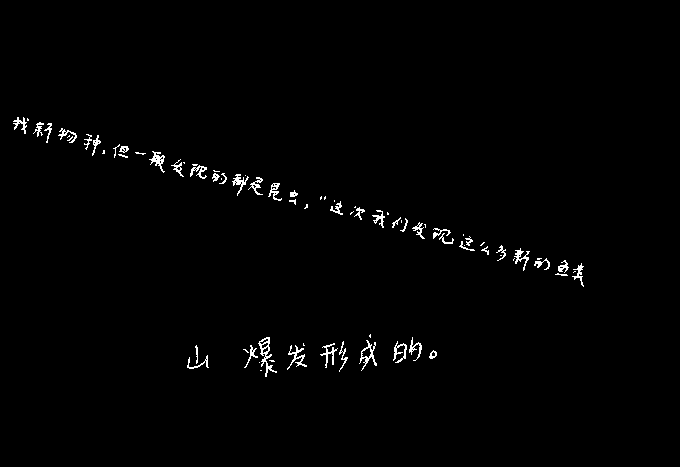 找新物种,但一般发现的都是昆虫,"这次我们发现这么多新的鱼类
山 爆发形成的。